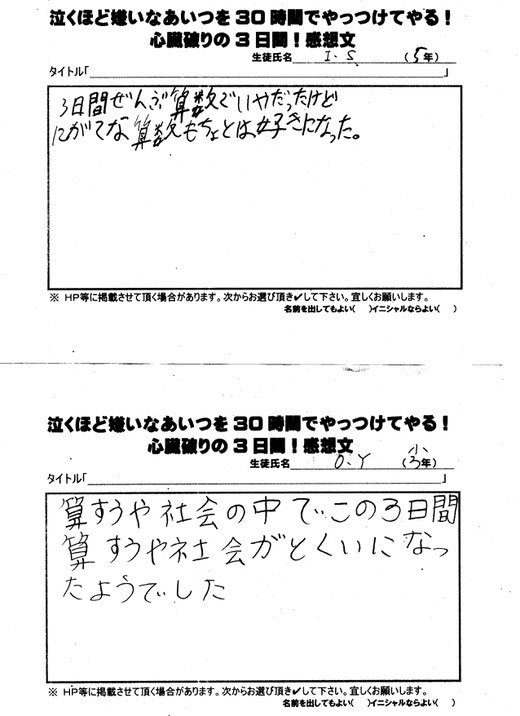 泣くほど嫌いなあいつを30時間でやっつけてやる!
心臓破りの3日間!感想文
生徒氏名 I.S. (5年)
タイトル「 」
3日間ぜんぶ算数でいやだったけど
にがてな算数もちょとは好きになった。
※ HP等に掲載させて頂く場合があります。次からお選び頂き✓して下さい。宜しくお願いします。
名前を出してもよい( )イニシャルならよい( )
泣くほど嫌いなあいつを30時間でやっつけてやる!
心臓破りの3日間!感想文
生徒氏名 O.Y (小3年)
タイトル「 」
算すうや社会の中でこの3日間
算すうや社会がとくいになっ
たようでした
※ HP等に掲載させて頂く場合があります。次からお選び頂き✓して下さい。宜しくお願いします。
名前を出してもよい( )イニシャルならよい( )